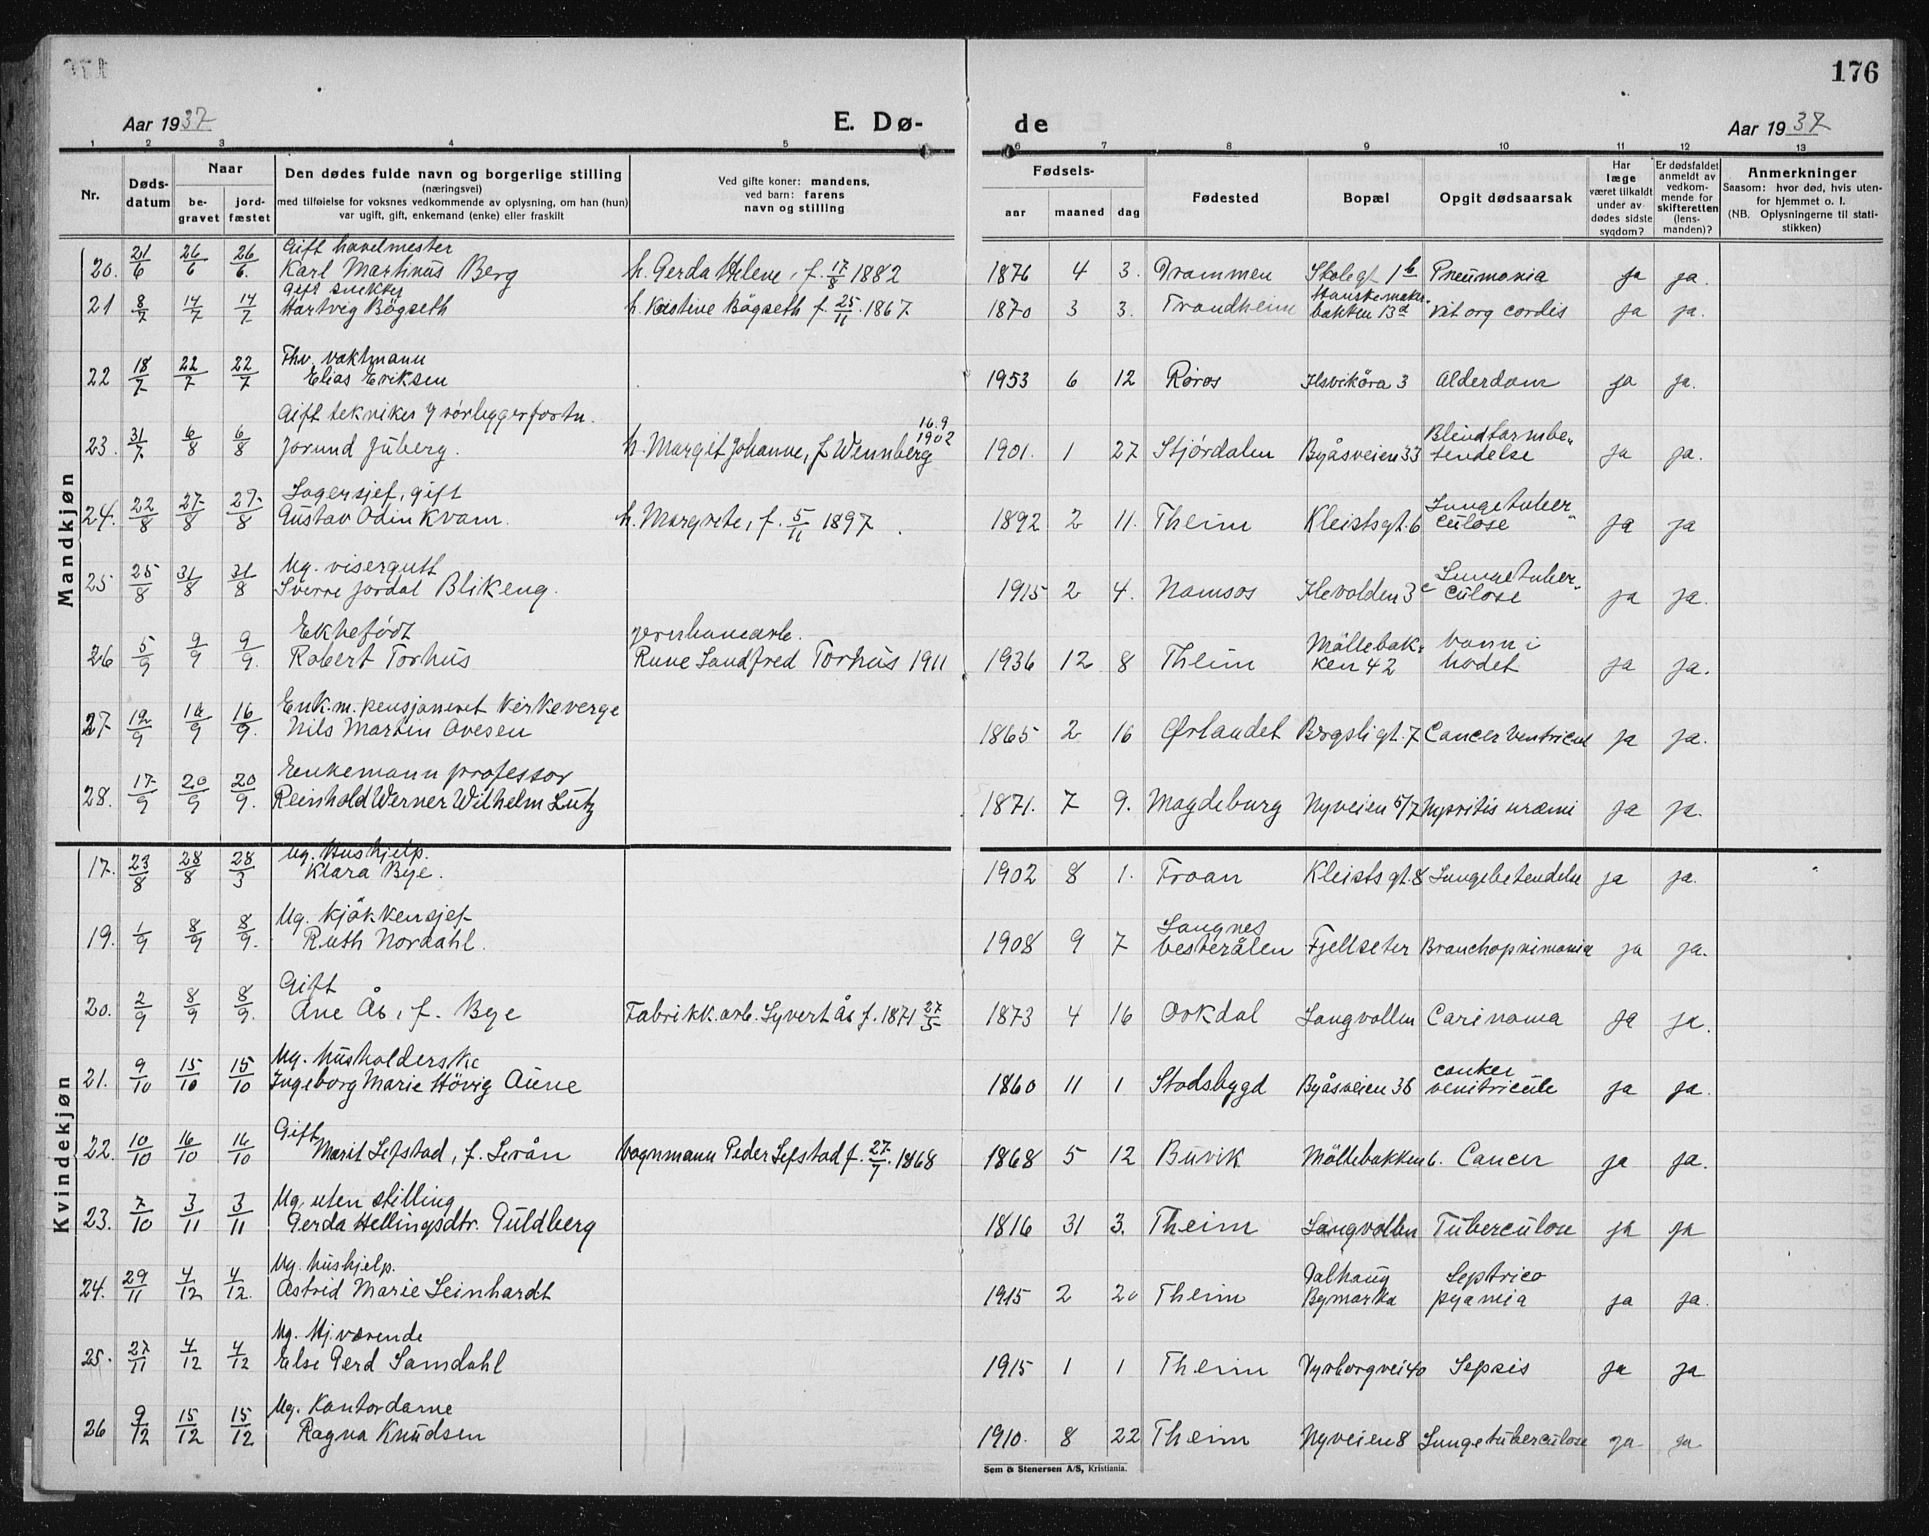 176
Aar 1937
E. Dø-
de
Aar 1937
1 2 3 4 5 6 7 8 9 10 11 12 13
Nr.
Døds-
datum
Naar
be-
gravet
jord-
fæstet
Den dødes fulde navn og borgerlige stilling
(næringsvei)
med tilføielse for voksnes vedkommende av oplysning, om han (hun)
var ugift, gift, enkemand (enke) eller fraskilt
Ved gifte koner: mandens,
ved barn: farens
navn og stilling
Fødsels-
aar maaned dag
Fødested
Bopæl
Opgit dødsaarsak
Har
læge
været tilkaldt
under av-
dødes sidste
sygdom?
Er dødsfaldet
anmeldt av
vedkom-
mende for
skifteretten
(lens-
manden)?
Anmerkninger
Saasom: hvor død, hvis uten-
for hjemmet o. l.
(NB. Oplysningerne til stati-
stikken)
Mandkjøn
Gift havelmester
20. 21/6 26/6 26/6. Karl Martinus Berg h. Gerda Helene, f. 17/8 1882 1876 4 3. Drammen Skolegt 1b Pneumonia ja ja.
Gift snekker Hanskemaker-
21 8/7 14/7 14/7 Hartvig Bögseth h. Kristine Bögseth f. 25/11 1867 1870 3 3. Trondheim bakken 13a vit org cordis ja ja.
Fhv. vaktmann
22 18/7 22/7 22/7 Elias Eriksen 1953 6 12 Røros Ilsvikøra 3 Alderdom ja ja.
Gift tekniker & rørleggerfortn. 16.9 Blindtarmbe-
23. 31/7. 6/8 6/8 Jorund Juberg. h. Margit Johanne, f Wennberg 1902 1901. 1 27 Stjørdalen Byåsveien 33 tendelse ja ja.
Lagersjef, gift Lungetuber-
24. 22/8 27/8 27/8 Gustav Odin Kvam. h. Margrete, f. 5/11 1897. 1892 2 11. Theim Kleistsgt. 6 culose ja ja
Ug. visergutt Lungetuber-
25 25/8 31/8 31/8 Sverre Jordal Blikeng. 1915 2 4. Namsos Ilevolden 3c culose ja ja.
Ektefödt jernbanearb. Möllebak- vann i
26 5/9 9/9 9/9. Robert Torhus Rune Sandfred Torhus 1911 1936 12 8 Theim ken 42 hodet ja ja.
Enk.m. pensjoneret kirkeverge
27 12/9 16/9 16/9. Nils Martin Ovesen 1865 2 16 Ørlandet Bergsligt. 7 Cancer Ventricul ja ja.
Enkemann professor
28. 17/9 20/9 20/9. Reinhold Werner Wilhelm Lutz 1871. 7 9. Magdeburg Nyveien 5/7 Nyvritis uræmi ja ja.
Kvindekjøn
Ug. Hushjelp.
17. 23/8 28/8 28/3 Klara Bye. 1902 8 1. Froan Kleistsgt. 8 Lungebetendelse ja ja.
Ug. kjökkensjef Langnes
19. 1/9 8/9 8/9. Ruth Nordahl. 1908 9 7 Vesterålen Fjellseter Bronchopnimonia ja ja.
Gift
20. 2/9 8/9 8/9. Ane Ås, f. Bye Fabrikk.arb. Syvert Ås f. 1871 27/5 1873 4 16 Orkdal Langvollen Carinoma ja ja.
Ug. husholderske canker
21. 9/10 15/10 15/10 Ingeborg Marie Hövig Aune 1860 11 1 Stadsbygd Byåsveien 36 venitricule ja ja.
Gift
22. 10/10 16/10 16/10 Marit Sefstad, f. Levån Vognmann Peder Sefstad f. 27/7. 1868 1868 5 12 Buvik Möllebakken 6. Cancer ja ja.
Ug. uten stilling
23. 7/10 3/11 3/11 Gerda Hellingsdtr. Guldberg 1816 31 3. Theim Langvollen Tuberculose ja ja
Ug. hushjelp. Dalhaug Septrico
24. 29/11 4/12 4/12. Astrid Marie Leinhardt 1915 2 20 Theim Bymarka pyamia ja ja.
Ug. Hj.værende
25. 27/11 4/12 4/12 Else Gerd Samdahl 1915 1 1 Theim Dyrborgvei 40 Sepsis ja ja
Ug. Kontordame
26 9/12 15/12 15/12 Ragna Knudsen 1910. 8 22 Theim Nyveien 8 Lungetuberculose ja ja
Sem & Stenersen A/S, Kristiania.